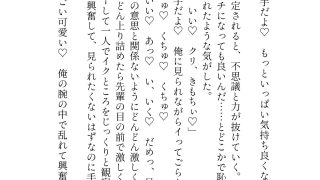 手だよ♡　もっといっぱい気持ち良くな
定されると、不思議と力が抜けていく。
チになっても良いんだ……とどこかで
れたような気がした。
いい♡　クリ、きもちぃ♡」
手だよ♡　俺に見られながらイってごら
ちゅ♡　くちゅ♡　くちゅ♡
いい♡　あっ♡　い、いく♡　だめっ、
の意思と関係ないようにどんどん激しく
どん上り詰めたら先輩の目の前で激しく
して一人でイクところをじっくりと観
興奮して、見られたくないはずなのに手
ごい可愛い♡　俺の腕の中で乱れて興奮